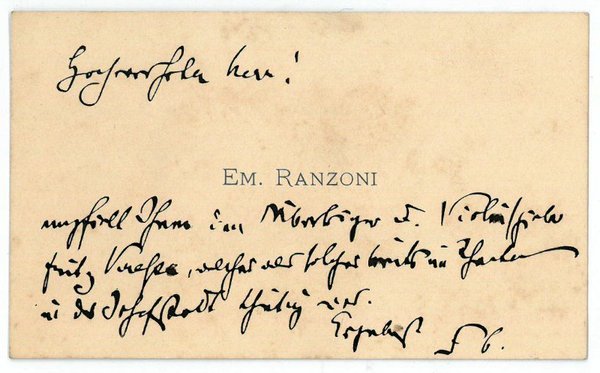 Hochverehrter Herr!
EM. RANZONI
empfiehlt Ihnen den Überbringer d. Violinspieler
Fritz welcher als solcher bereits im Theater
in der Josefstadt thätig war.
Ergebenst